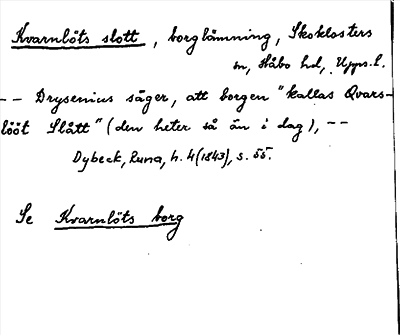 Kvarnlöts slott, borglämning, Skoklosters
sn, Håbo hd, Upps. l.
-- Drysenius säger, att borgen "kallas Qvars-
lööt Slått" (den heter så än i dag), --
Dybeck, Runa, h. 4 (1843), s. 55.
Se Kvarnlöts borg